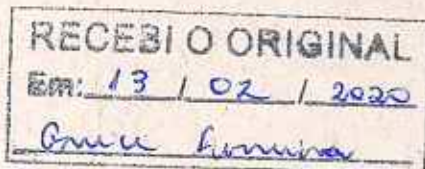 RECEBI O ORIGINAL
Em: 13 / 02 / 2020